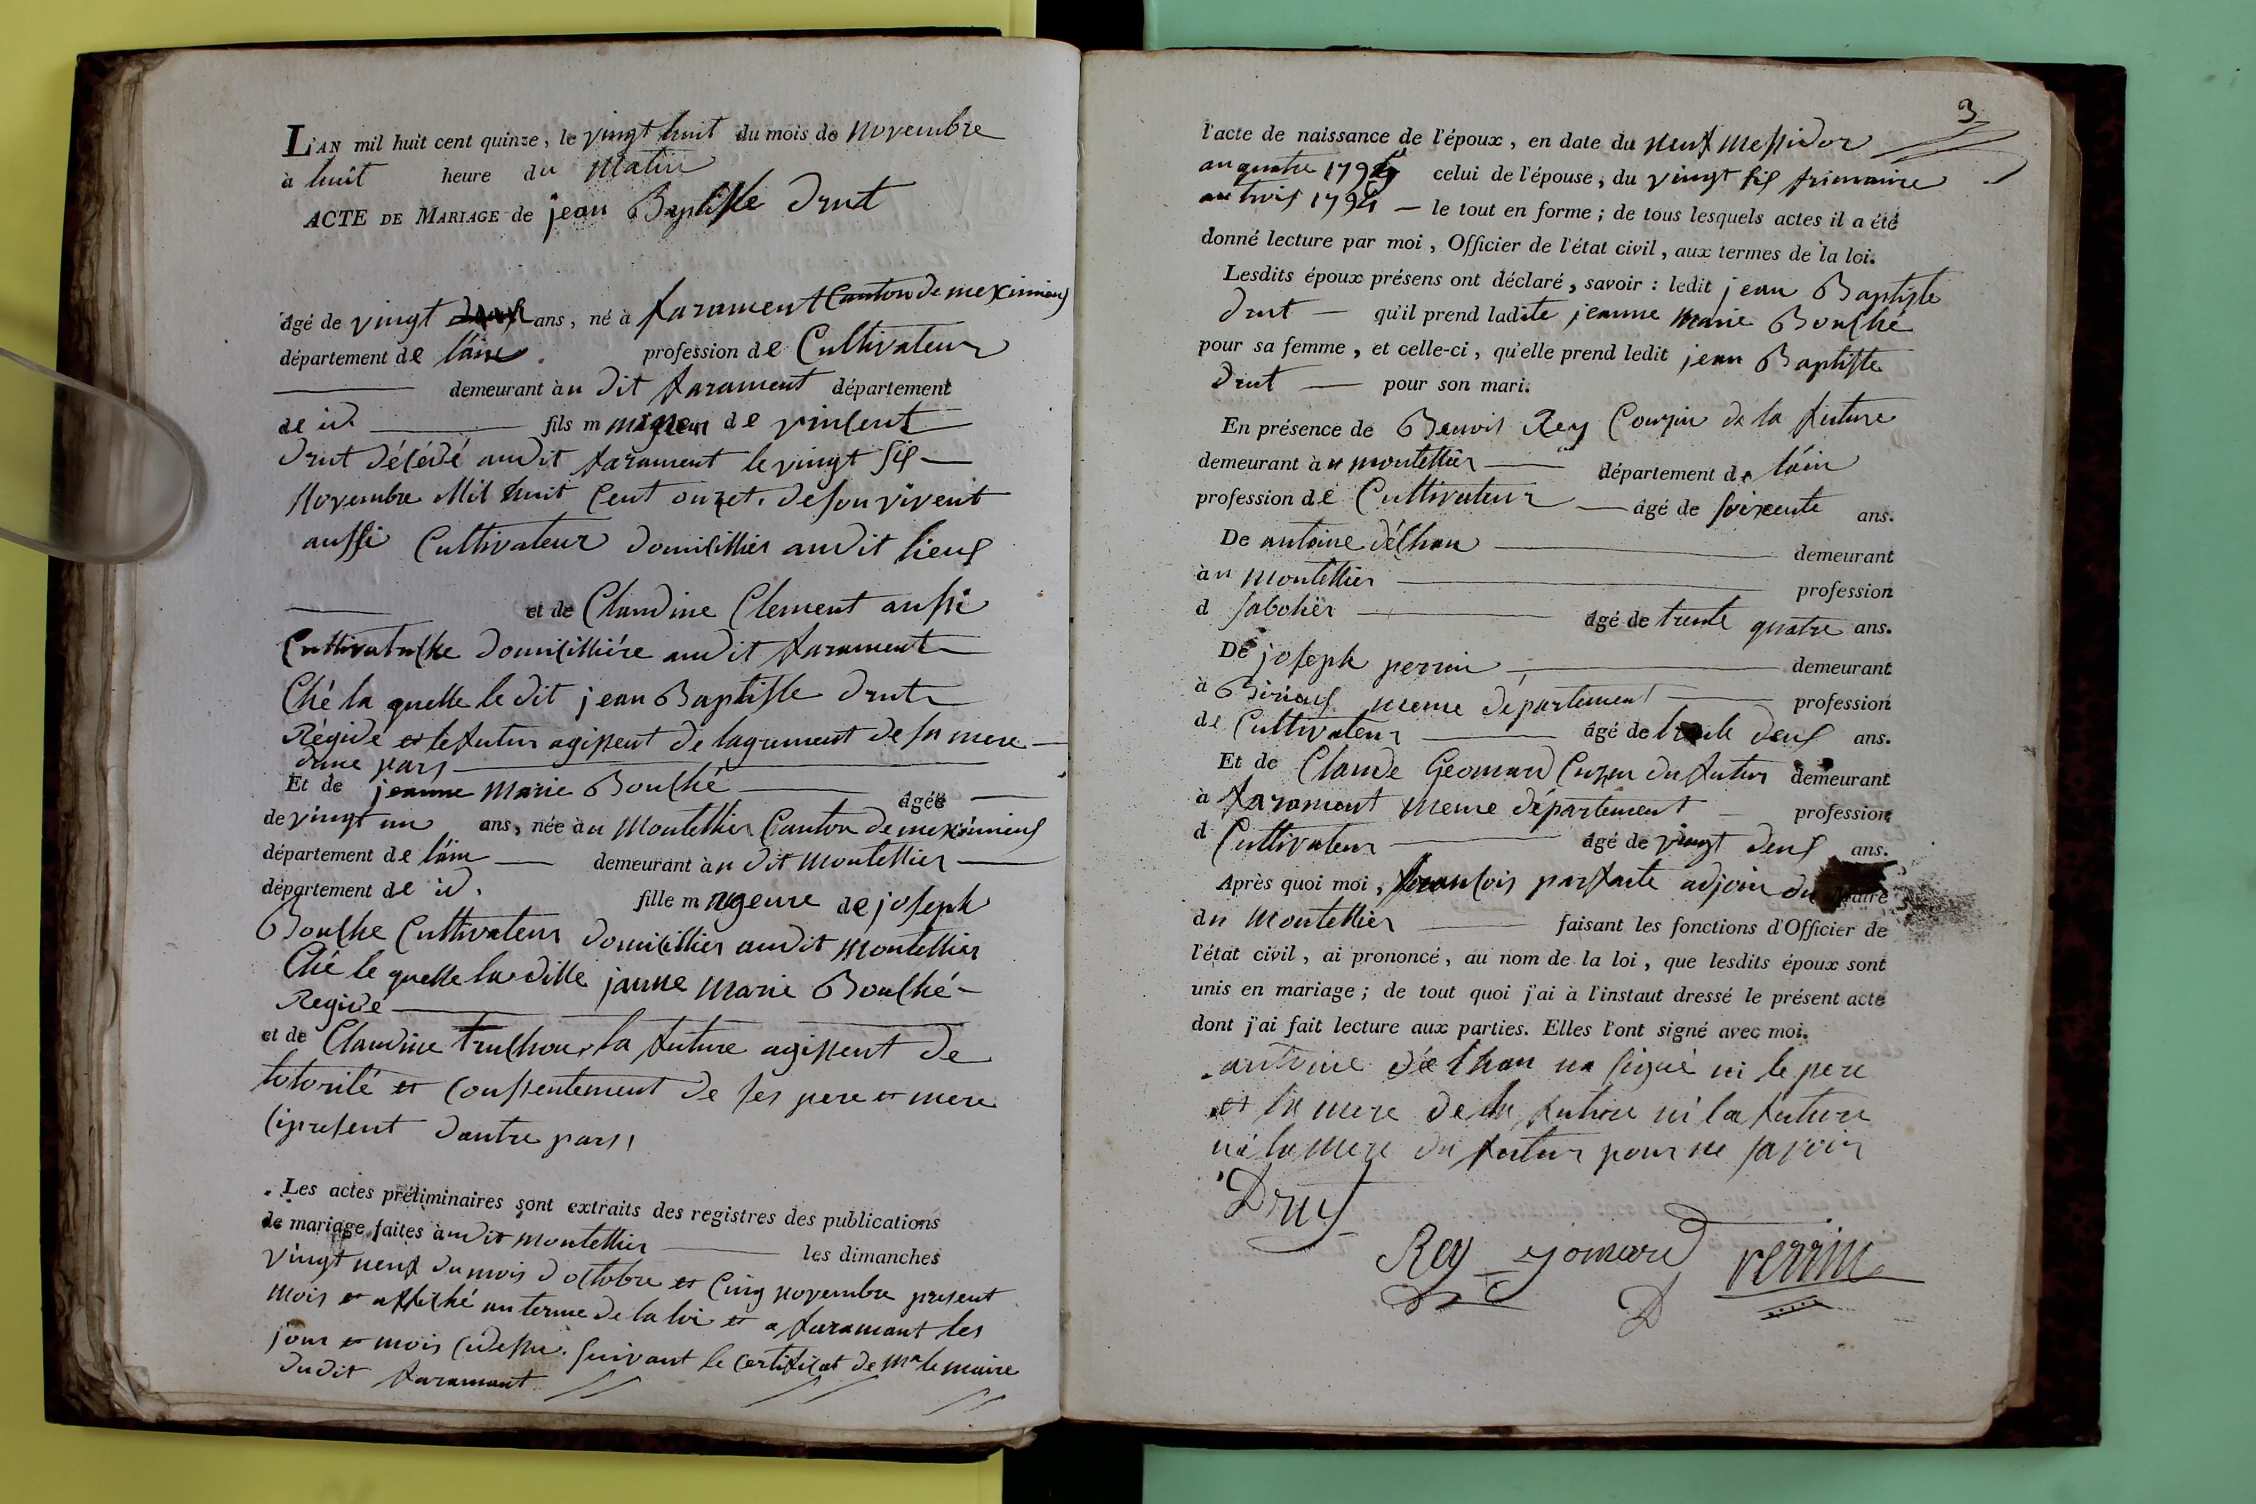 L'AN mil huit cent quinze, le vingt huit du mois de novembre
à huit heure du matin
ACTE DE MARIAGE de jean Baptiste Drut
âgé de vingt ans, né à farament Canton de meximieux
département de lain. profession de Cultivateur
demeurant au dit farament département
de id fils mineur de vincent
Drut décédé audit farament le vingt six
Novembre Mil huit Cent onzet. de son vivent
aussi Cultivateur domicillier audit lieux
et de Claudine Clement aussi
Cultivatriche domicilliére audit farament
Ché la quelle le dit jean Baptiste Drut
Régide et le futur agissent de lagrument de sa mere
dune pars
Et de jeanne Marie Bouché âgée
de vingt un ans, née au Montellier Canton de meximieux
département de lain demeurant au dit montellier
département de id. fille mageure de joseph
Bouche Cultivateur domicillier audit Montellier
Ché le quelle la ditte janne Marie Bouché
Regide
et de Claudine truchon, la future agissent de
lotorité et Conssentement de ses pere et mere
cipresent dautre pars,
Les actes préliminaires sont extraits des registres des publications
de mariage faites audit montellier les dimanches
vingt neuf du mois d octobre et Cinq novembre present
mois et affiché au terme de la loi et a faramant les
jour et mois cidessu. Suivant le Certificat de Mr le maire
dudit faramant
3
l'acte de naissance de l'époux, en date du neuf messidor
an quatre celui de l'épouse, du vingt six frimaire
an trois 1794 — le tout en forme; de tous lesquels actes il a été
donné lecture par moi, Officier de l'état civil, aux termes de la loi.
Lesdits époux présens ont déclaré, savoir : ledit jean Baptiste
Drut — qu'il prend ladite jeanne Marie Bouché
pour sa femme, et celle-ci, qu'elle prend ledit jean Baptiste
Drut — pour son mari.
En présence de Benoit Rey Couzin de la future
demeurant au montellier département de láin
profession de Cultivateur — âgé de soixente ans.
De antoine déchan demeurant
au Montellier profession
d sabotier âgé de trente quatre ans.
De joseph perrin demeurant
à Birieux meme département profession
de Cultivateur âgé de trente deux ans.
Et de Claude Geomard Cuzin du futur demeurant
à faramant meme département profession
d Cultivateur âgé de vingt deux ans.
Après quoi moi, francois parfaite adjoin du maire
du Montellier faisant les fonctions d'Officier de
l'état civil, ai prononcé, au nom de la loi, que lesdits époux sont
unis en mariage; de tout quoi j'ai à l'instaut dressé le présent acte
dont j'ai fait lecture aux parties. Elles l'ont signé avec moi.
antoine déchan na signé ni le pere
et la mere de la future ni la future
ni la mere du futur pour ne savoir
Drut
Rey gomard perrin